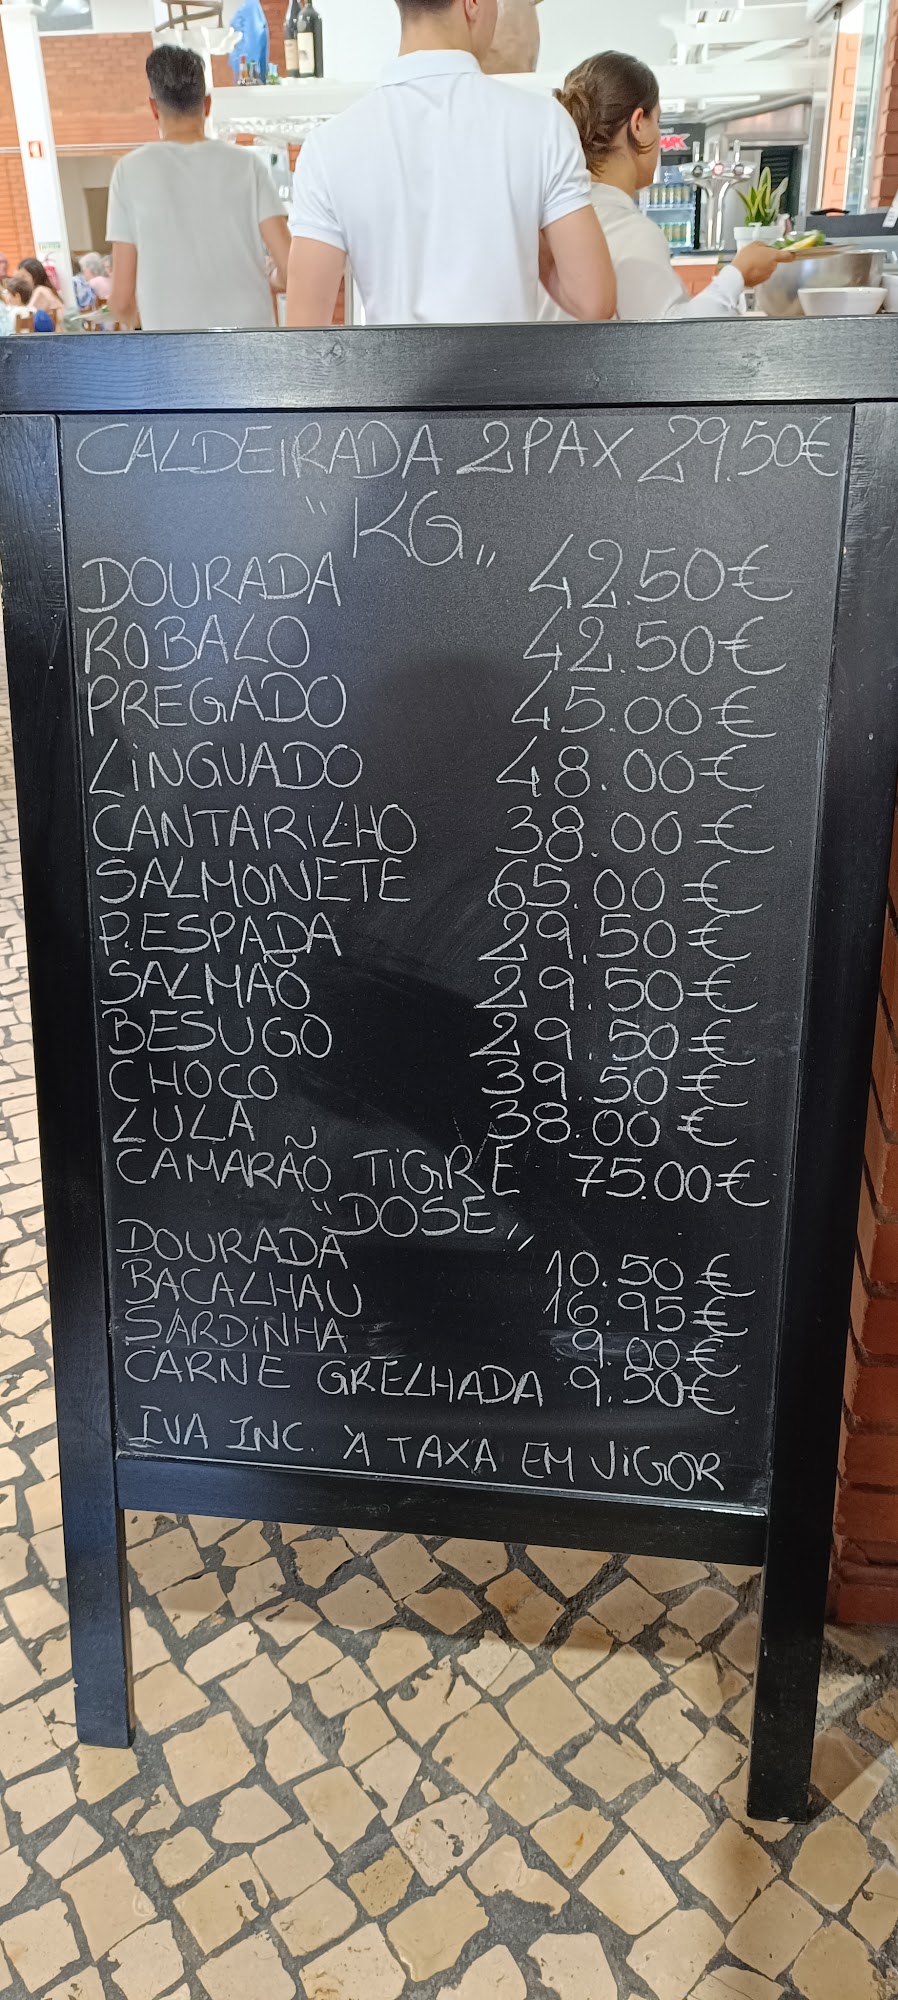 CALDEIRADA 2PAX 29.50€
"KG"
DOURADA 42.50€
ROBALO 42.50€
PREGADO 45.00€
LINGUADO 48.00€
CANTARILHO 38.00€
SALMONETE 65.00€
P.ESPADA 29.50€
SALMÃO 29.50€
BESUGO 29.50€
CHOCO 39.50€
LULA 38.00€
CAMARÃO TIGRE 75.00€
"DOSE"
DOURADA 10.50€
BACALHAU 16.95€
SARDINHA 9.00€
CARNE GRELHADA 9.50€
IVA INC. À TAXA EM VIGOR